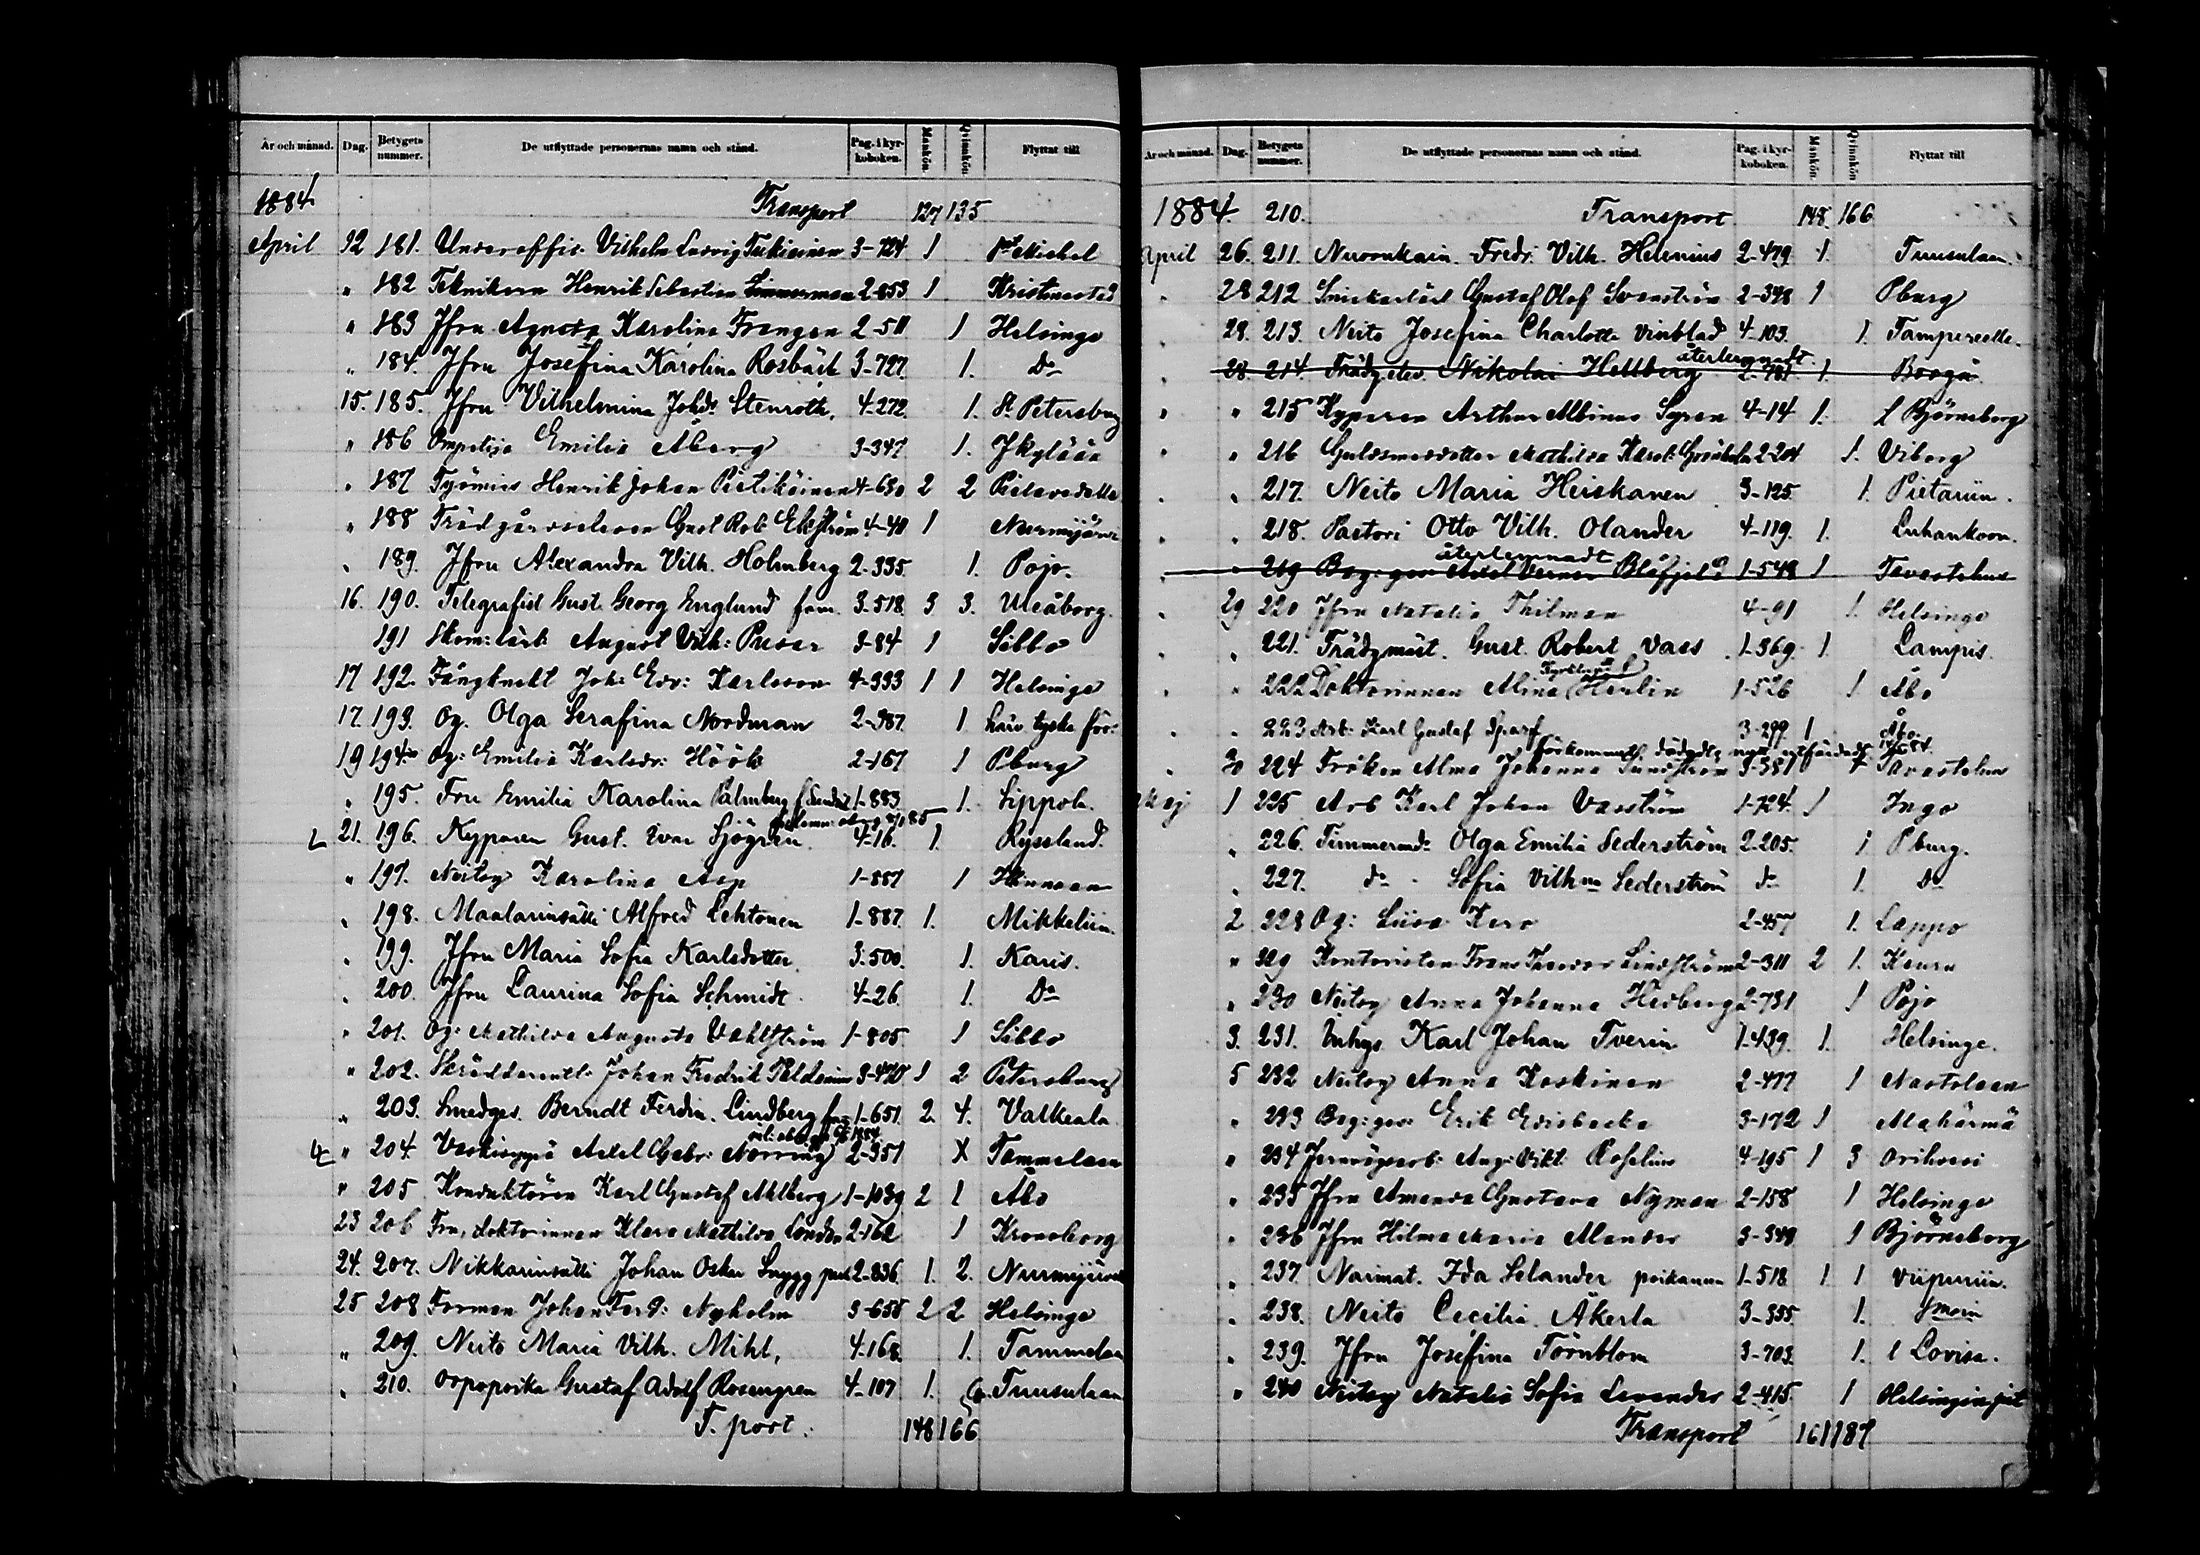 År och månad. Dag. Betygets nummer. De utflyttade personernas namn och stånd. Pag. i kyrkoboken. Mankön. Qvinnkön. Flyttat till
1884 Transport 127 135
April 12 181. Underoffic. Vilhelm Ludvig 3-724 1 St Michel
" 182 Teknikern Henrik Sebastian Zimmerman 2-853 1 Kristinestad
" 183 Jfru Agneta Karolina Frangen 2-511 1 Helsinge
" 184. Jfru Josefina Karolina Rosbäck 3-727. 1. Do
15. 185. Jfru Vilhelmina Johdr Stenroth, 4-272. 1. St Petersburg
" 186 Ompelija Emilia Åberg 3-347 1. Jkylään
" 187 Työmies Henrik Johan Pietikäinen 4-630 2 2 Pielavedelle
" 188 Trädgårdseleven Gust Rob. Ekström 4-40 1 Nurmijärvi
" 189. Jfru Alexandra Vilh. Holmberg 2-335. 1. Pojo.
16. 190. Telegrafist Gust. Georg Englund fam. 3-518. 3 3. Uleåborg.
191 Skom: lärl: August Vilh: 3-84 1 Sibbo
17 192. Fångknekt Joh: Edv: Karlsson 4-333 1 1 Helsinge
17. 193. Og. Olga Serafina Nordman 2-387. 1 härv. tyska för:
19 194. Og: Emilia Karlsdr: Höök 2-167 1 Pburg
" 195. Fru Emilia Karolina Palmberg 1-883 1. Sippola.
21. 196. Kyparen Gust. Ivar Sjögren 4-16. 1. Ryssland.
" 197. Neitsy Karolina Asp 1-887 1
" 198. Maalarinsälli Alfred Lehtonen 1-887. 1. Mikkeliin.
" 199. Jfru Maria Sofia Karlsdotter. 3-500. 1. Karis.
" 200. Jfru Laurina Sofia Schmidt. 4-26. 1. Do
" 201. Og: Mathilda Augusta Vahlström 1-805 1 Sibbo
" 202. Johan Fredrik 3-470 1 2 Petersburg
" 203. Smedges. Berndt Ferdin. Lindberg fam 1-651. 2. 4. Valkeala.
" 204. Vaskiseppä Axel Gabr: Norring 2-351 X Tammelaan
" 205 Konduktören Karl Gustaf Ahlberg 1-1039 2 1 Åbo
23 206 Fru, doktorinnan Klara Mathilda 2-162 1 Kronoborg
24. 207. Nikkarinsälli Johan Oskar Snygg 2-836. 1. 2. Nurmijärvelle
25 208 Forman Johan Ferd: Nyholm 3-655 2 2 Helsinge
" 209. Neito Maria Vilh. Mihl, 4-168. 1. Tammelaan
" 210. Oppipoika Gustaf Adolf Rosengren 4-107 1. Tuusulaan
T. port. 148 166
År och månad. Dag. Betygets nummer. De utflyttade personernas namn och stånd. Pag. i kyrkoboken. Mankön. Qvinnkön Flyttat till
1884. 210. Transport 148. 166
April 26. 211. Fredr. Vilh. Helenius 2-479. 1. Tuusulaan.
" 28 212 Snickarlärl Gustaf Olof Svanström 2-348 1 Pburg
" 28. 213. Neito Josefina Charlotta Vinblad 4-103. 1. Tampereelle.
återlemnadt
" 28. 214. Trädg. elev. Nikolai Hellberg 2-781. 1. Borgå
" " 215 Kyparen Arthur Albinus Syren 4-14 1. Björneborg
" " 216 Guldsmedsdotter Mathilda Karol. Grönholm 2-204 1. Viborg
" " 217. Neito Maria Heiskanen 3-125. 1. Pietariin.
" " 218. Pastori Otto Vilh. Olander 4-119. 1. Luhankoon.
återlemnadt
" " 219 Bag: ges Axel Verner Blåfjeld 1-548 1 Tavastehus
" 29 220 Jfru Natalia Thilman 4-91 1. Helsinge
" " 221. Trädgmäst. Gust. Robert Vass 1-369. 1. Lampis.
" " 222 Doktorinnan Alina Herlin 1-526 1 Åbo
" 223 Arb: Karl Gustaf Sparf 3-299 1 Åbo
förkommet
" 30 224 Fröken Alma Johanna Sundström 3-381 Tavastehus
Maj 1 225 Arb Karl Johan Vasström 1-724. 1 Ingo
" 226. Timmermd: Olga Emilia Sederström 2-205. 1 Pburg.
" 227. do - Sofia Vilhma Sederström do 1. do
2 228 Og: Liisa 2-457 1. Lappo
" 229 Kontoristen Frans Theodor Lindström 2-311 2 1. Keuru
" 230 Neitsy Anna Johanna Hedberg 2-731 1 Pojo
3. 231. Inhys Karl Johan Tverin 1-439. 1. Helsinge.
5 232 Neitsy Anna Koskinen 2-477 1 Nastolaan
" 233 Bag: ges: Erik 3-172 1 Alahärmä
" 234 Jernvägsarb: Aug: Vikt: Roselius 4-195 1 3 Orihvesi
" 235 Jfru Amanda Gustava Nyman 2-158 1 Helsinge
" 236 Jfru Hilma Maria Alander 3-349 1 Björneborg
" 237. Naimat. Ida Selander poikansa 1-518 1 1 Viipuriin.
" 238. Neito Cecilia Åkerla 3-355. 1.
" 239. Jfru Josefina Törnblom 3-703. 1. Lovisa.
" 240 Neitsy Natalia Sofia Lavander 2-415. 1 Helsingin pit
Transport 161 187